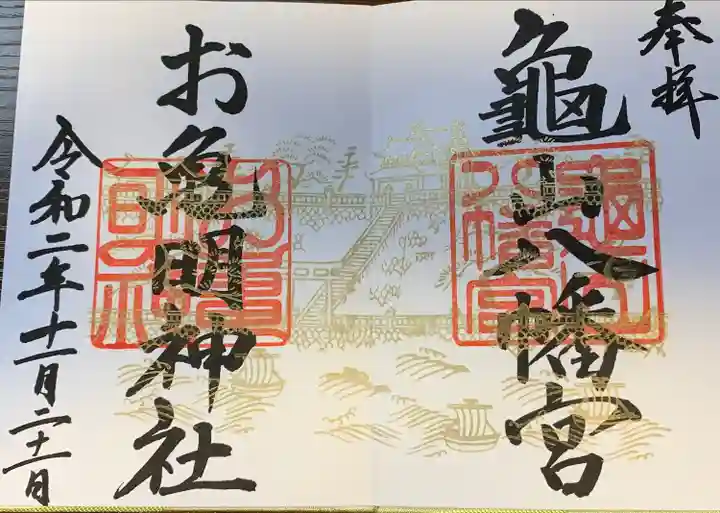 奉拝
龜山八幡宮
お亀明神社
令和二年十一月二十一日